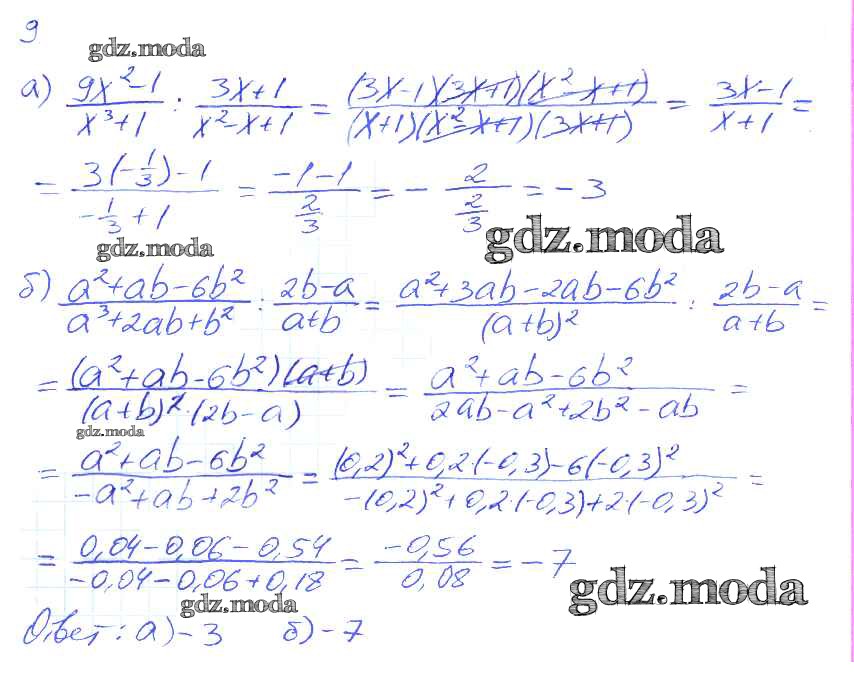 9
gdz.moda
а) (9x²-1)/(x³+1) : (3x+1)/(x²-x+1) = ((3x-1)(3x+1)(x²-x+1))/((x+1)(x²-x+1)(3x+1)) = (3x-1)/(x+1) =
= (3(-1/3)-1)/(-1/3+1) = (-1-1)/(2/3) = - 2/(2/3) = -3
gdz.moda
gdz.moda
б) (a²+ab-6b²)/(a³+2ab+b²) : (2b-a)/(a+b) = (a²+3ab-2ab-6b²)/((a+b)²) : (2b-a)/(a+b) =
= ((a²+ab-6b²)(a+b))/((a+b)²·(2b-a)) = (a²+ab-6b²)/(2ab-a²+2b²-ab) =
gdz.moda
= (a²+ab-6b²)/(-a²+ab+2b²) = ((0,2)²+0,2·(-0,3)-6(-0,3)²)/(-(0,2)²+0,2·(-0,3)+2·(-0,3)²) =
= (0,04-0,06-0,54)/(-0,04-0,06+0,18) = (-0,56)/(0,08) = -7
gdz.moda
gdz.moda
Ответ: а) -3 б) -7